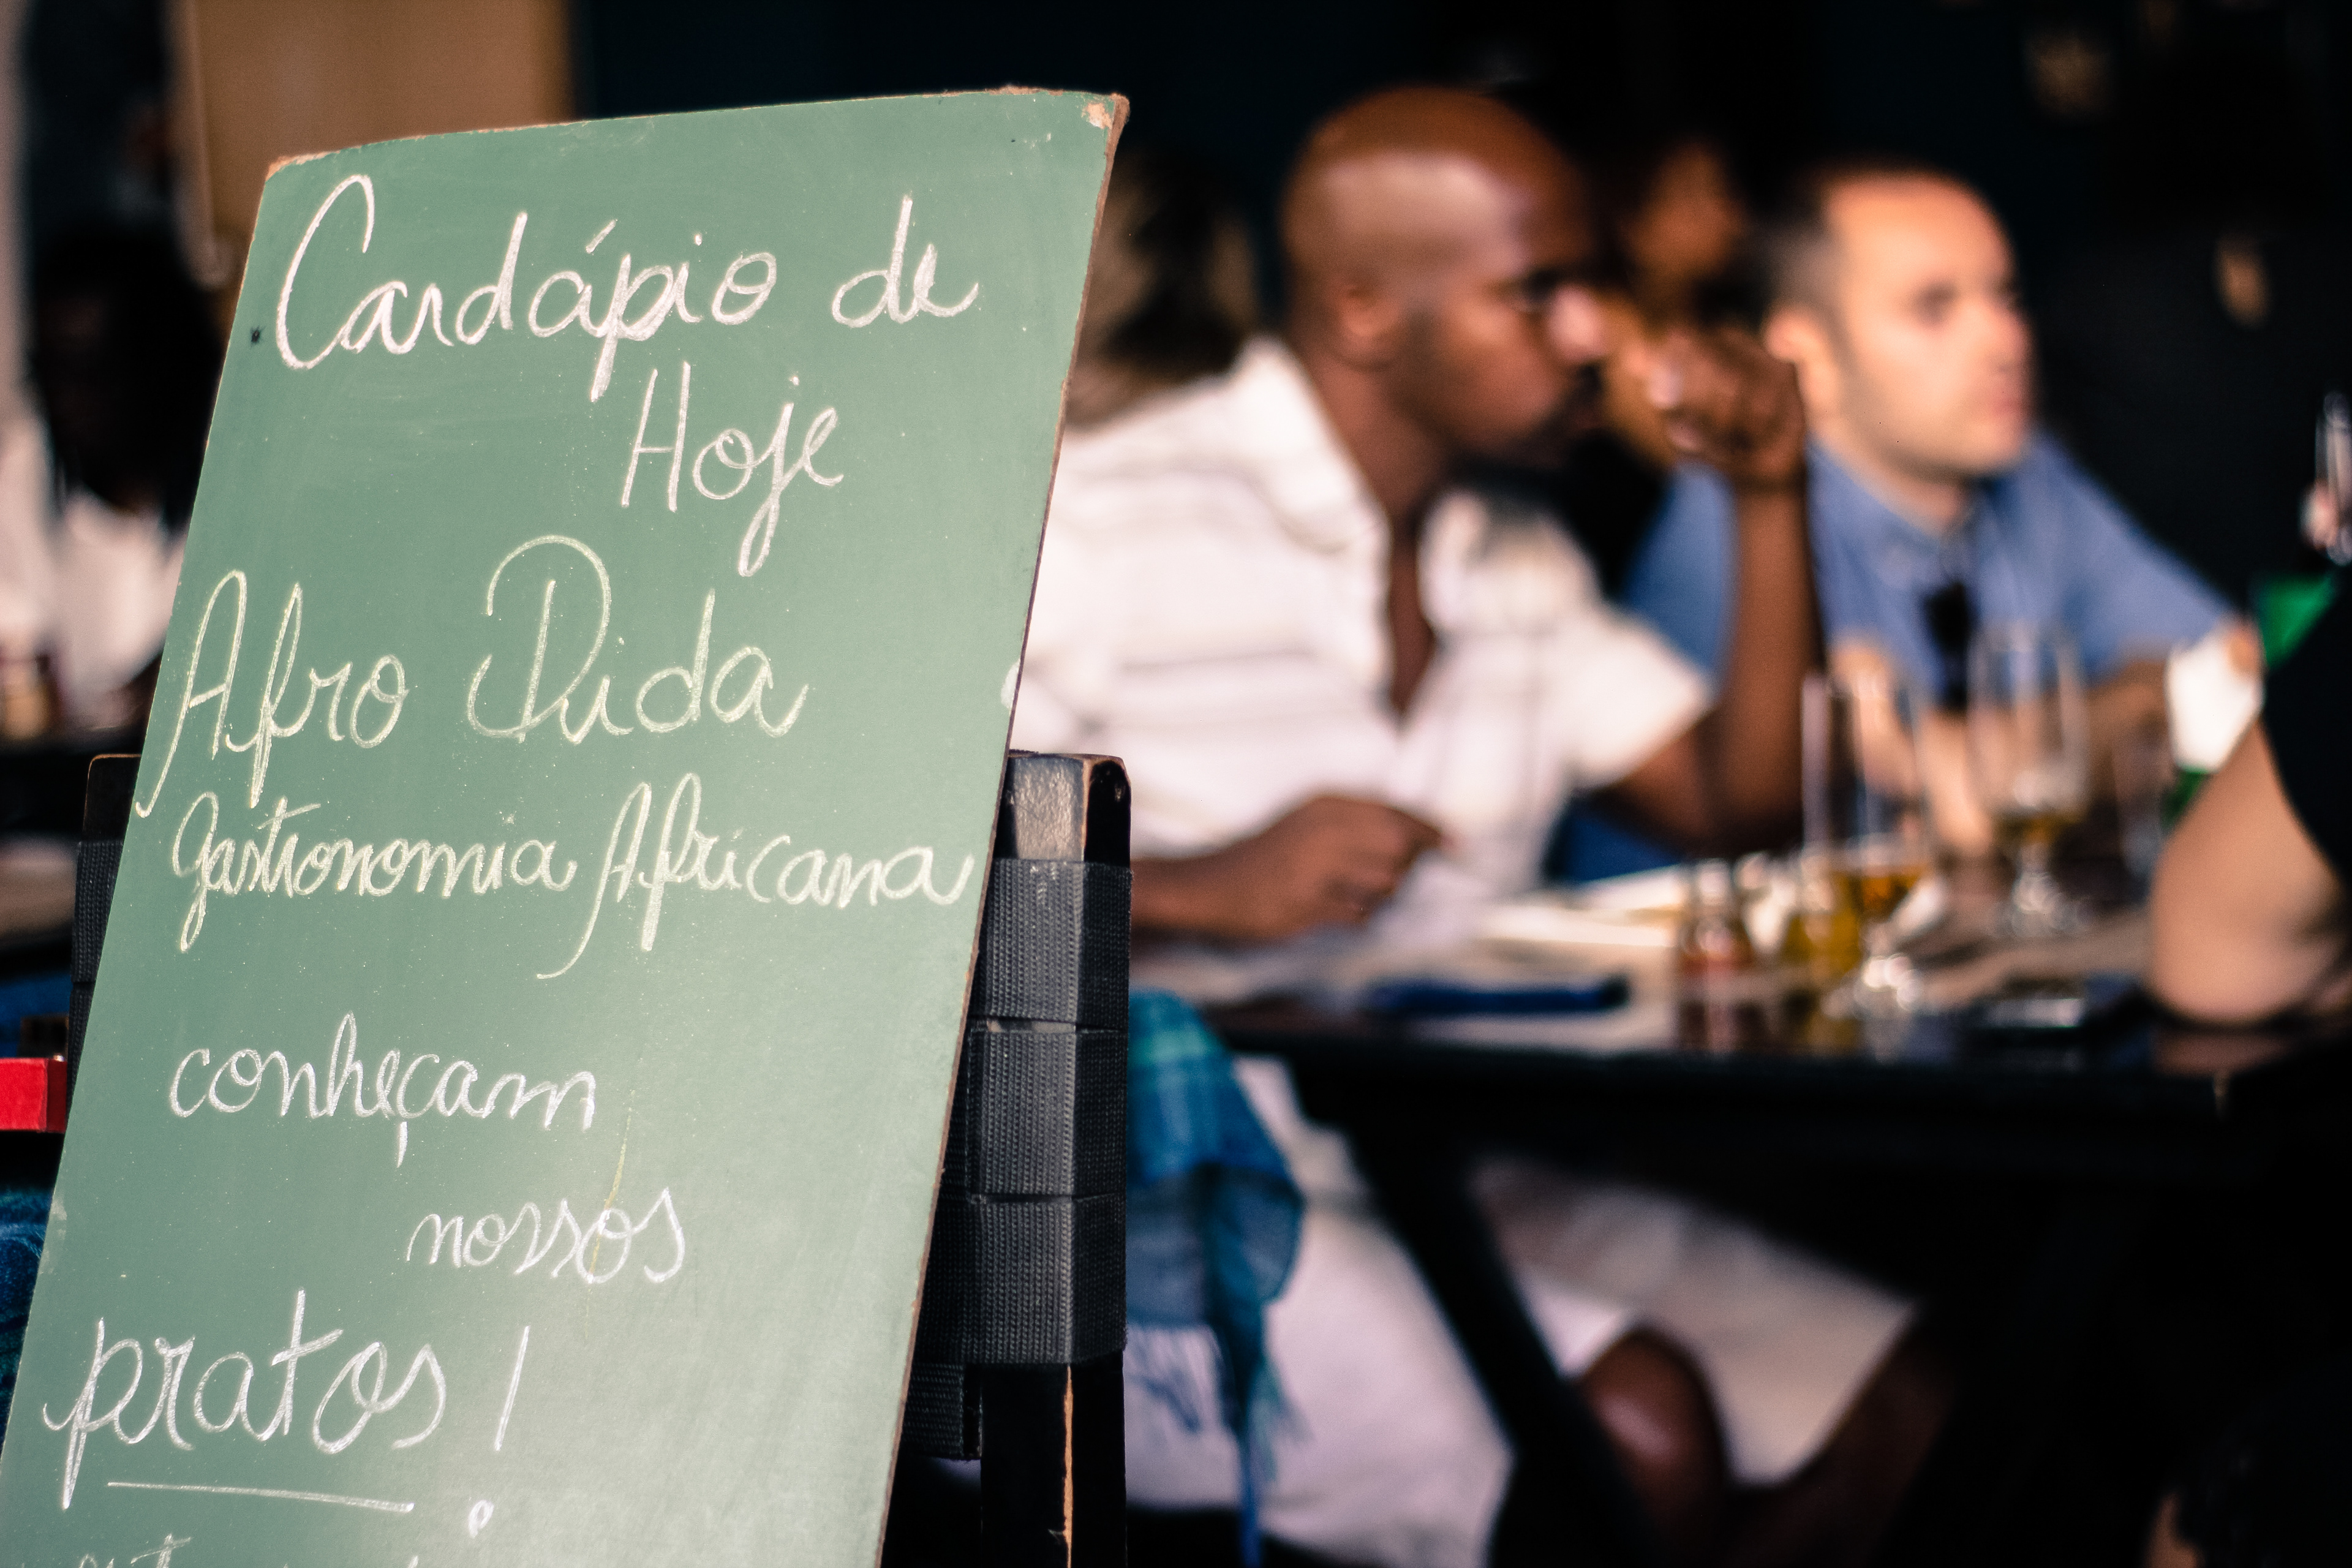 Cardápio de
Hoje
Afro Dida
Gastronomia Africana
conheçam
nossos
pratos!